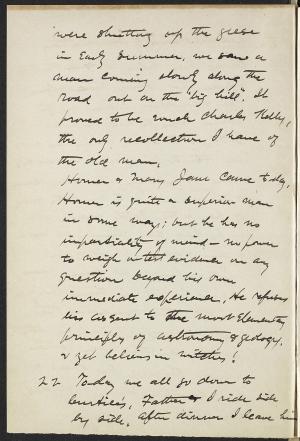 were shutting up the geese
in Early Summer, we saw a
man coming slowly along the
road out on the "big hill". It
proved to be uncle Charles Kelly,
the only recollection I have of
the old man.
Homer & Mary Jane came to-day.
Homer is quite a superior man
in some ways; but he has no
impartiality of mind – no power
to weigh or test evidence on any
question beyond his own
immediate experience. He refuses
his assent to the most Elementary
principles of astronomy & geology,
& yet believes in witches!
22 Today we all go down to
Curtis's, Father & I ride side
by side. After dinner I leave him